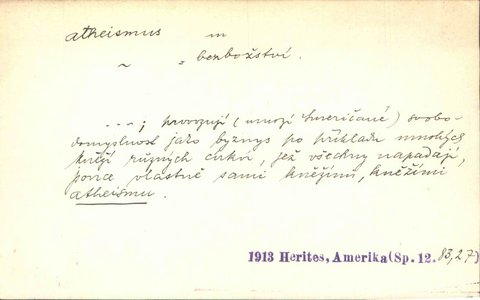 atheismus m
~ „ bezbožství.
...; provozují (mnozí Američané) svobo-
domyslnost jako byznys po příkladu mnohých
kněží různých církví, jež všechny napadají,
jsouce vlastně sami kněžími, kněžími
atheismu.
1913 Herites, Amerika (Sp. 12. 83,27)